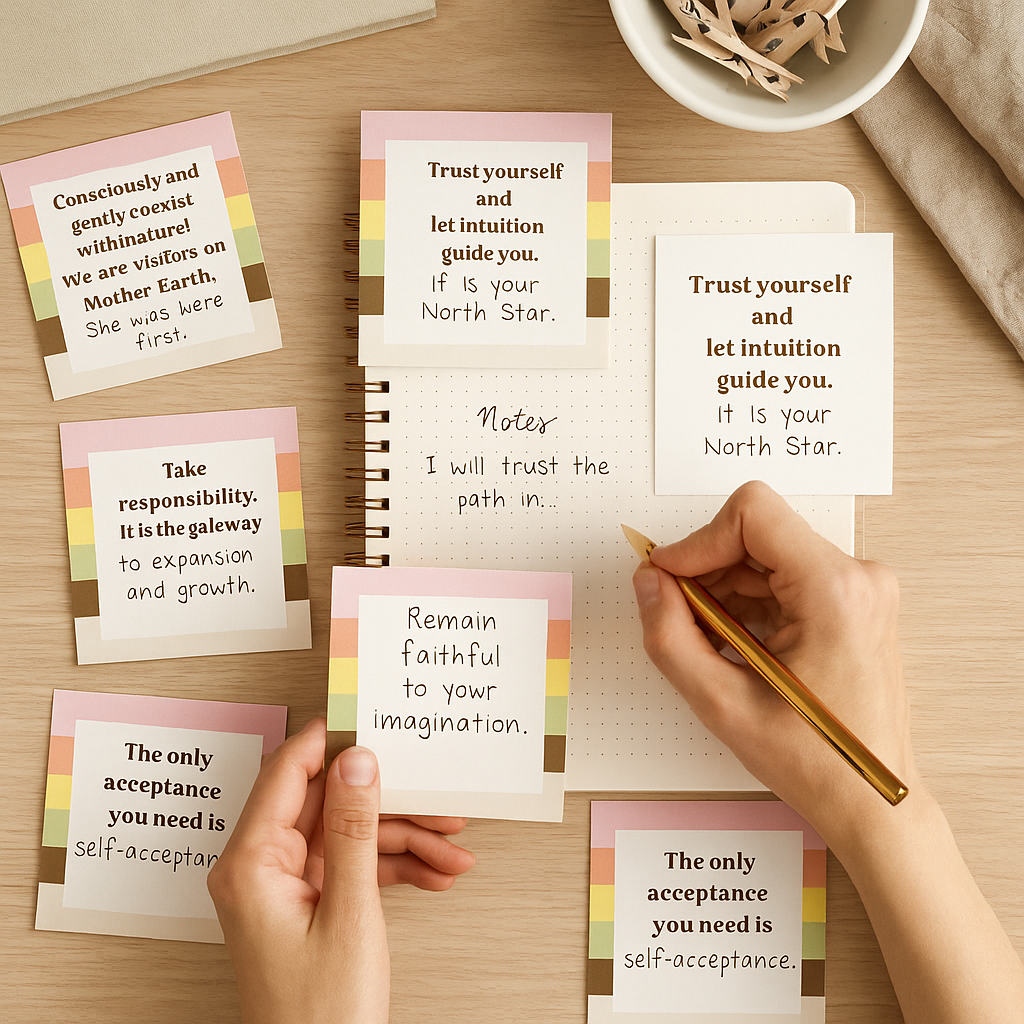 Consciously and
gently coexist
withinature!
We are visitors on
Mother Earth,
She was were
first.
Trust yourself
and
let intuition
guide you.
If Is your
North Star.
Trust yourself
and
let intuition
guide you.
It Is your
North Star.
Notes
I will trust the
path in...
Take
responsibility.
It is the galeway
to expansion
and growth.
Remain
faithful
to yowr
imagination.
The only
acceptance
you need is
self-acceptan
The only
acceptance
you need is
self-acceptance.